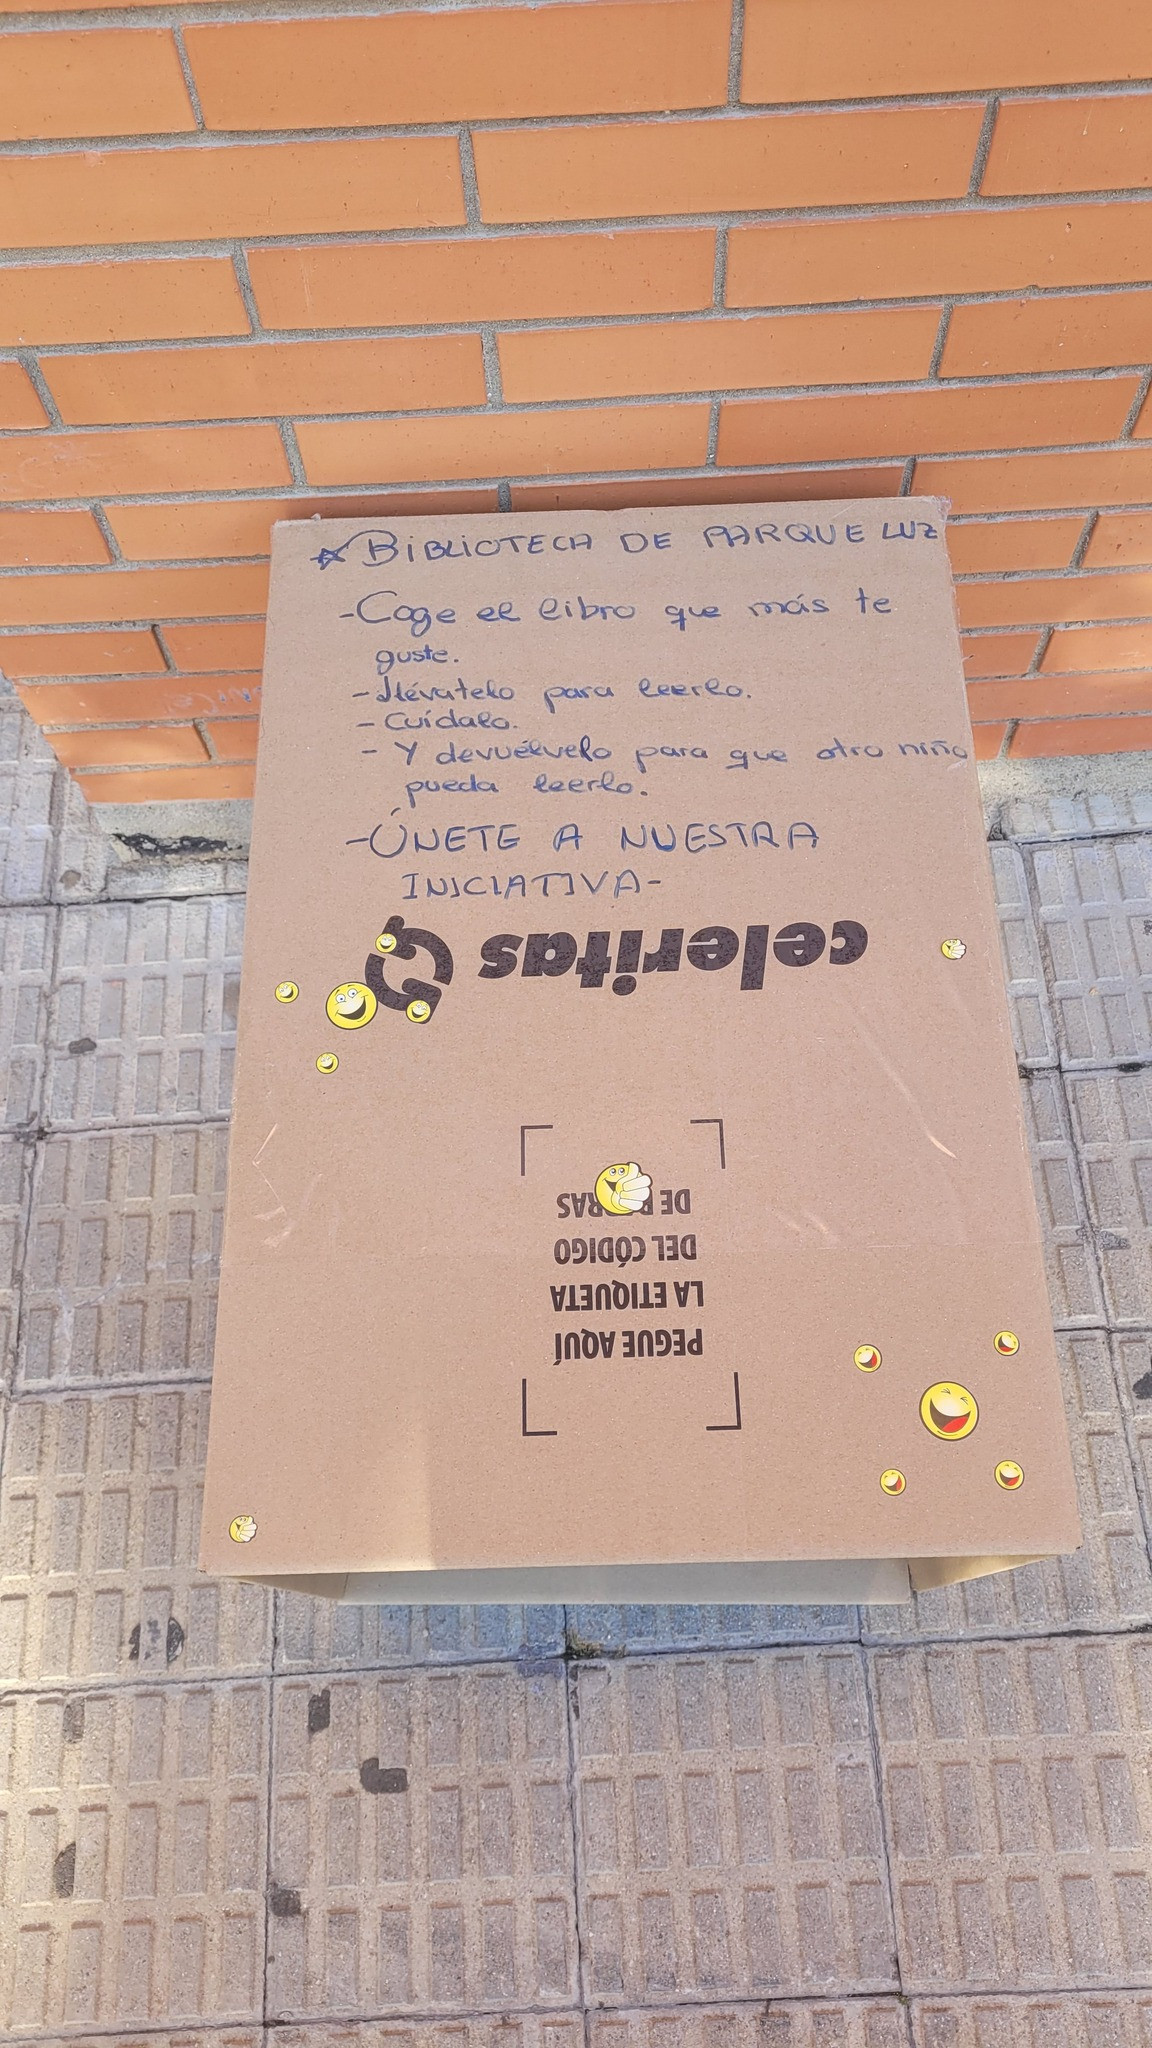 BIBLIOTECA DE PARQUE LUZ
- Coge el libro que más te
guste.
- Llévatelo para leerlo.
- Cuídalo.
- Y devuélvelo para que otro niño
pueda leerlo.
- ÚNETE A NUESTRA
INICIATIVA -
celeritas
PEGUE AQUÍ
LA ETIQUETA
DEL CÓDIGO
DE